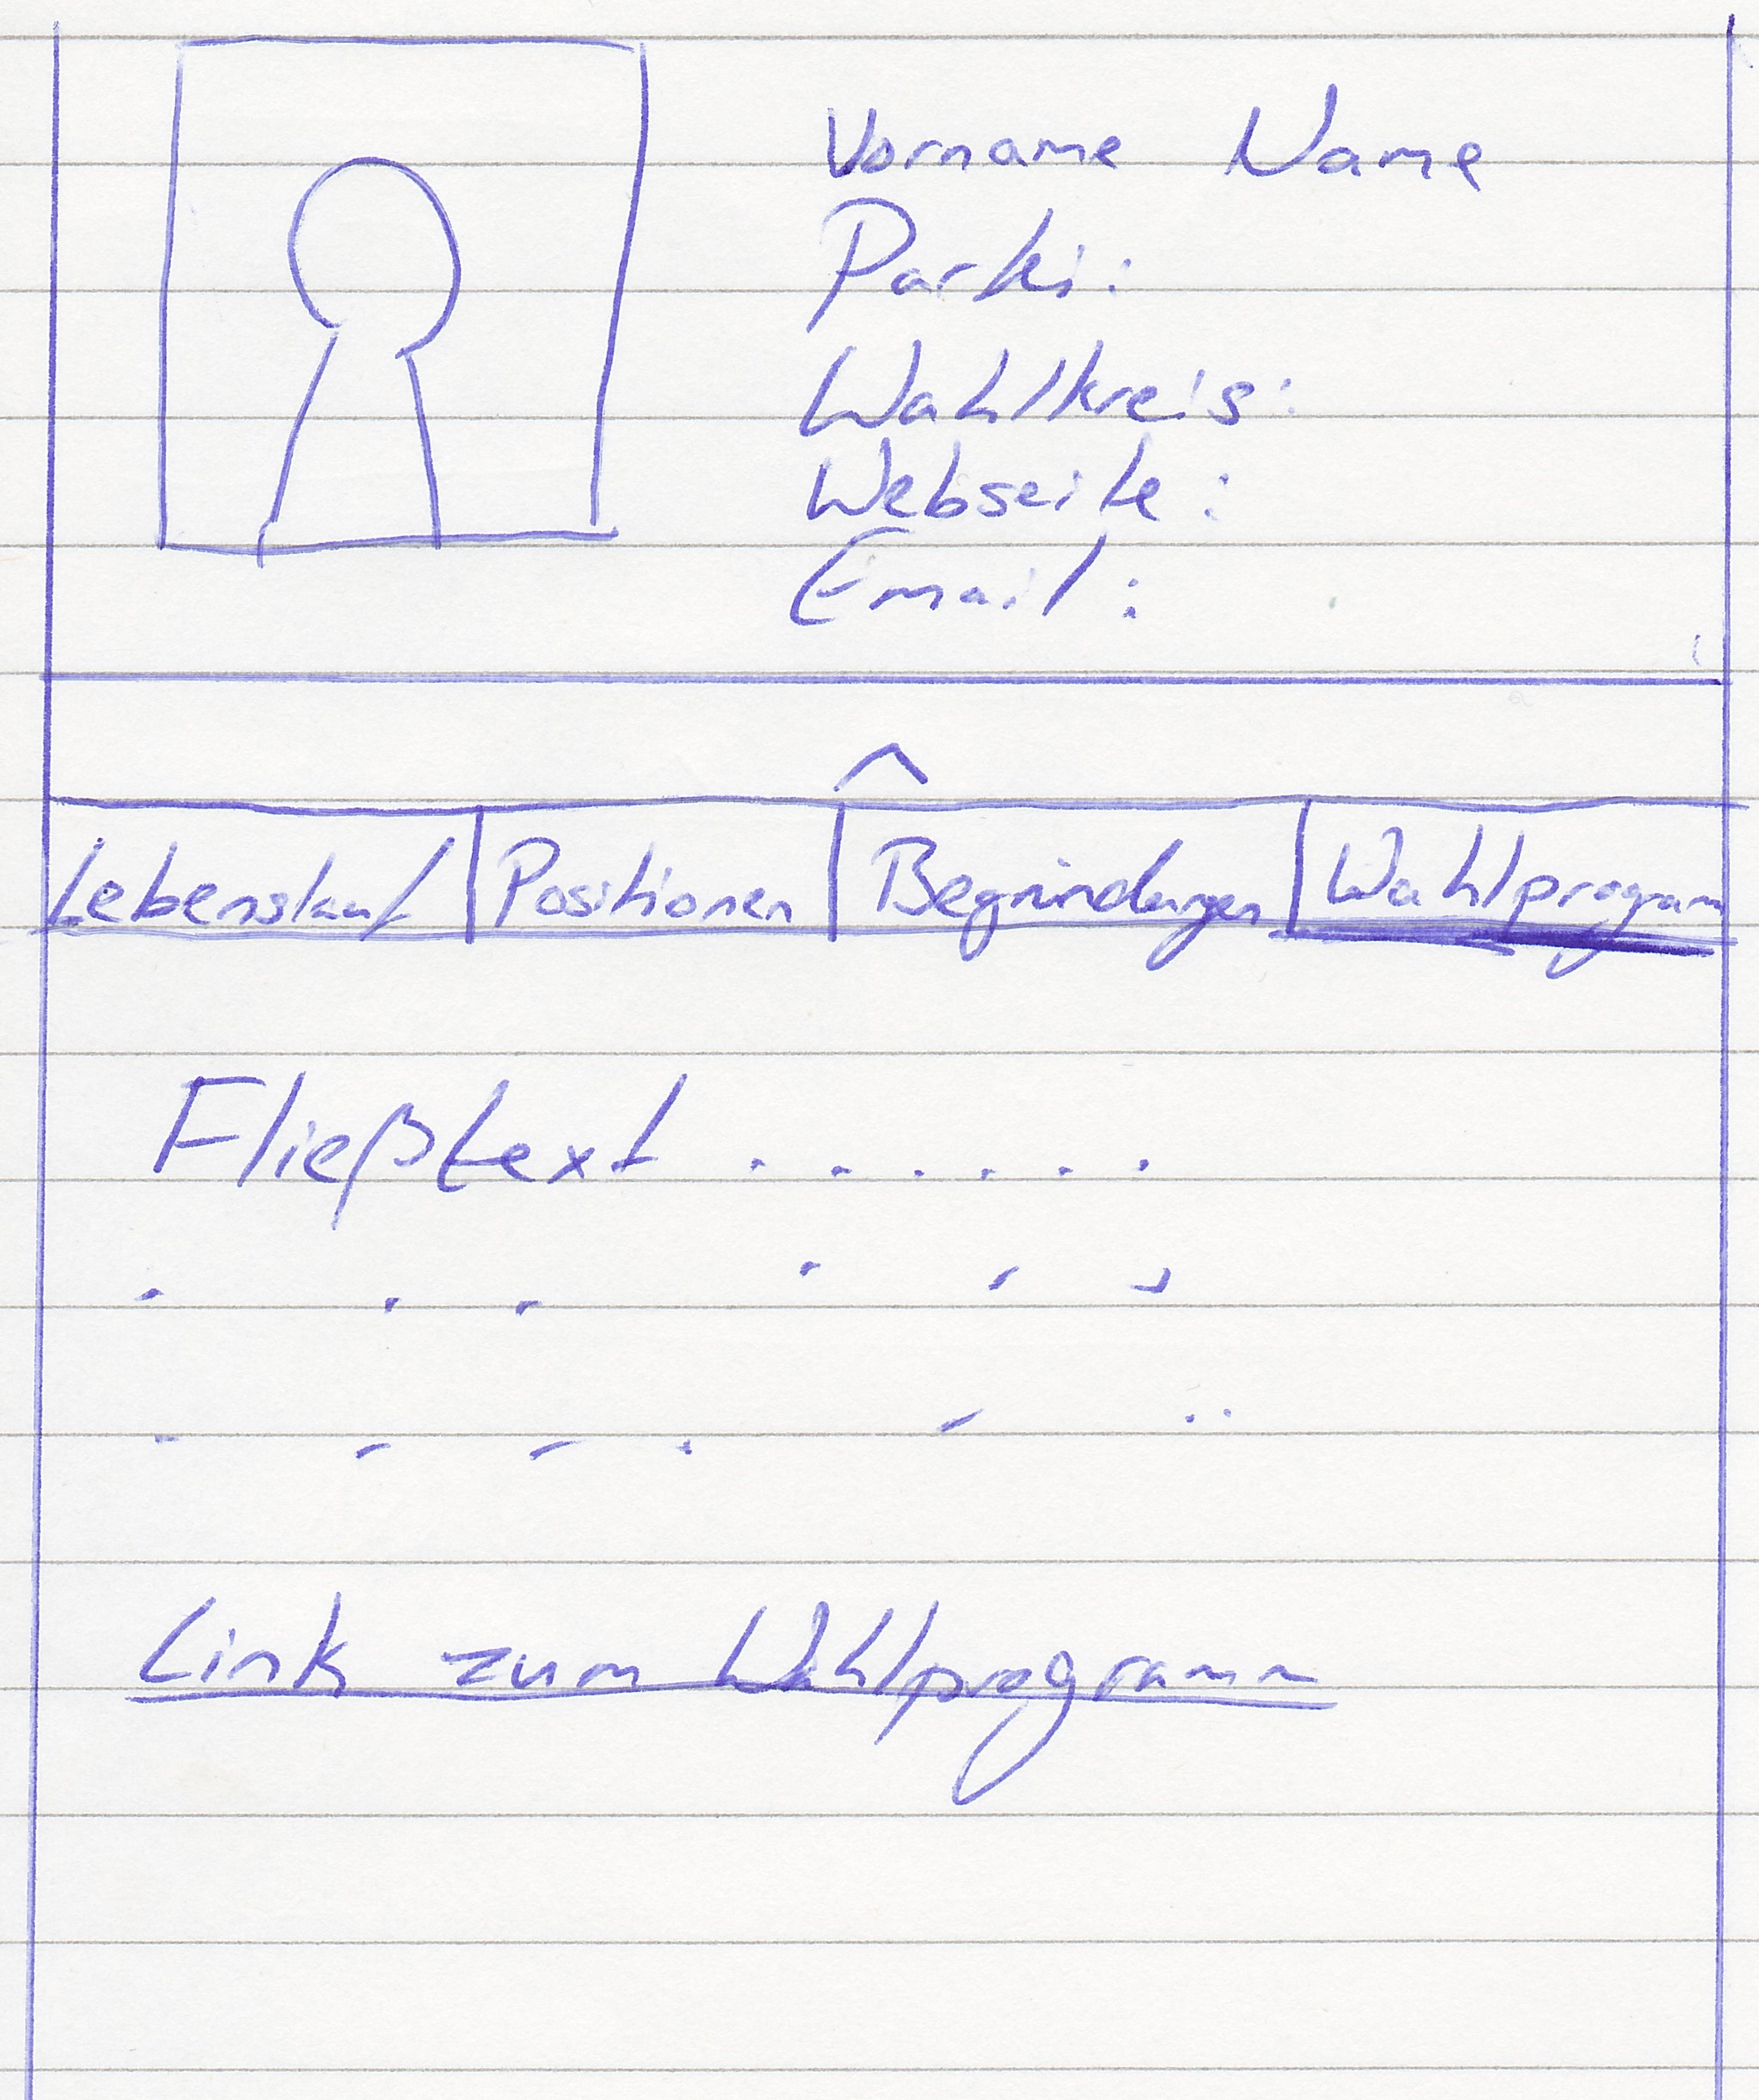 Vorname Name
Partei:
Wahlkreis:
Webseite:
Email:
Lebenslauf Positionen Begründungen Wahlprogram
Fließtext . . . . . .
Link zum Wahlprogramm